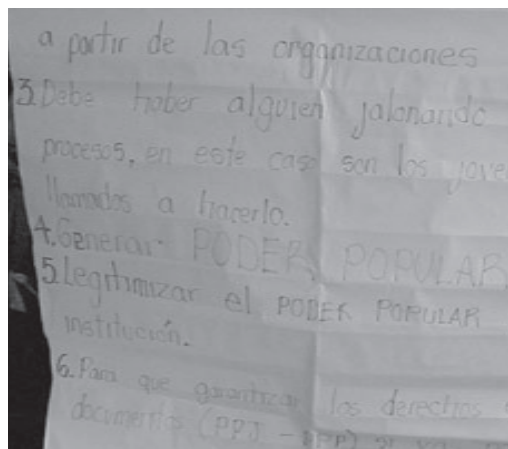 a partir de las organizaciones
3. Debe haber alguien jalonando
procesos, en este caso son los jove
llamados a hacerlo.
4. Generar PODER POPULAR
5. Legitimizar el PODER POPULAR
institución.
6. Para que garantizar los derechos
documentos (PPJ - PPP) si ya